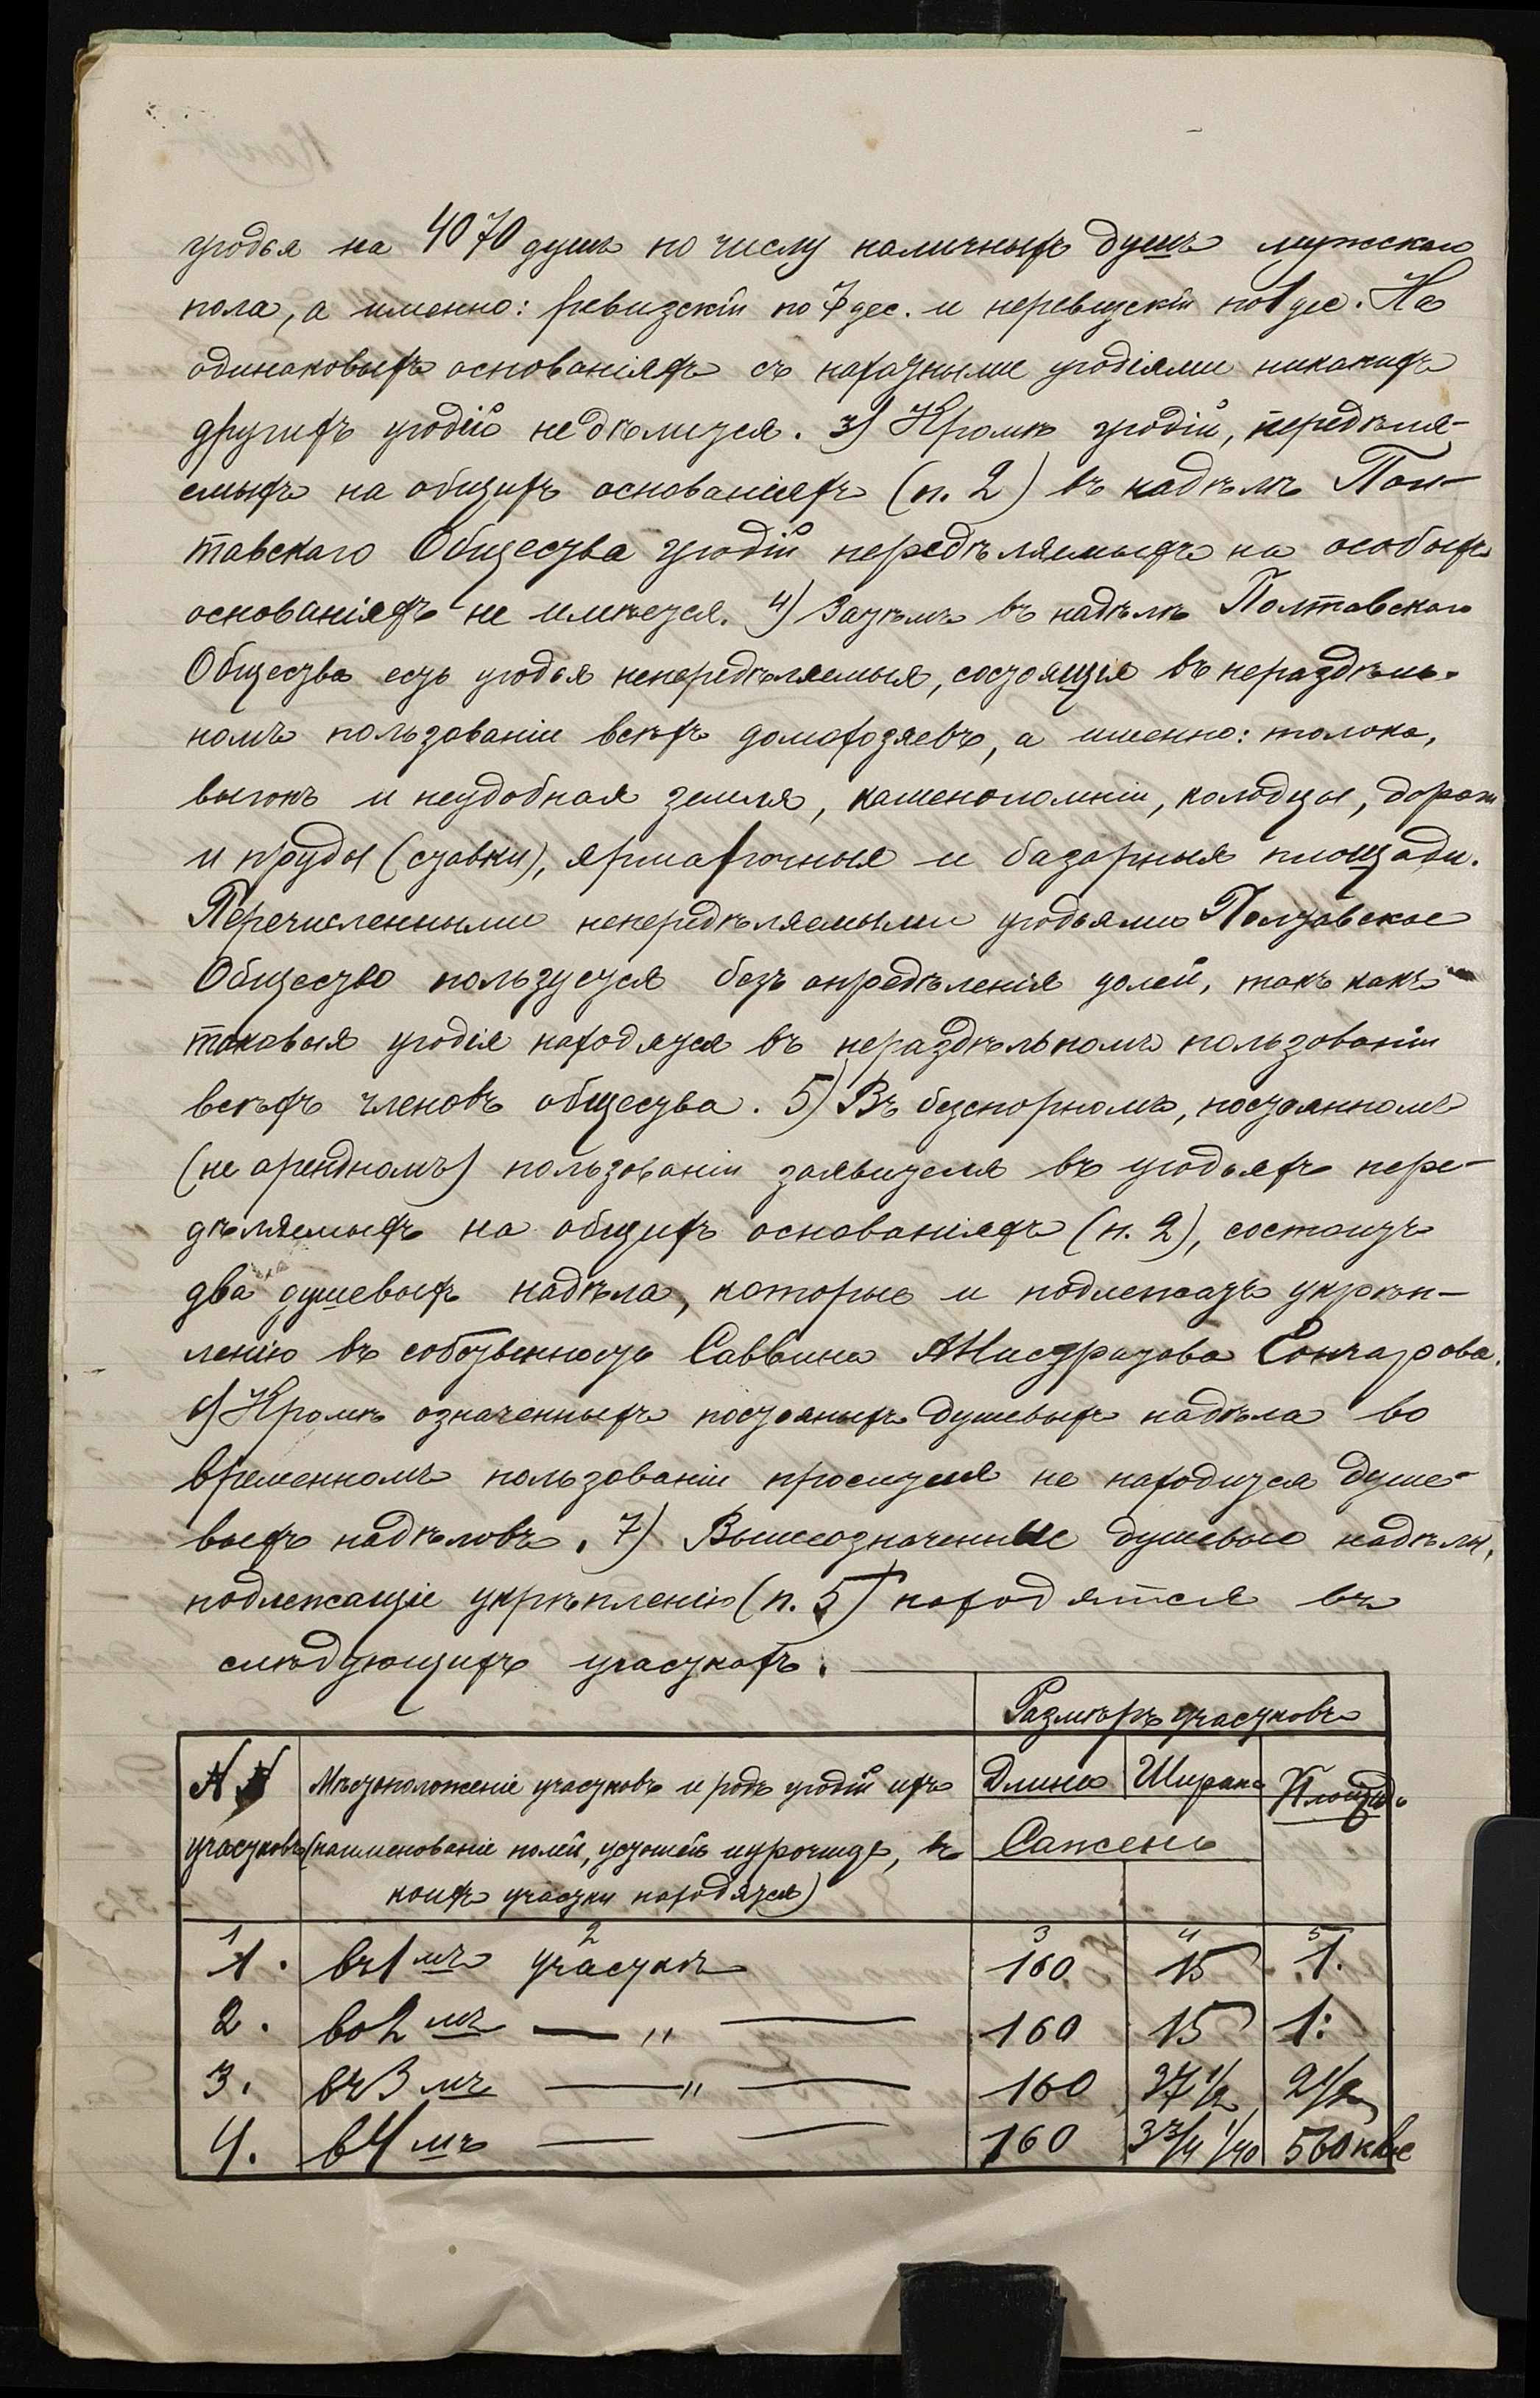 угодья на 4070 душъ по числу наличныхъ душъ мужскаго
пола, а именно: ревизскiи по 7 дес. и неревизскiи по 1 дес. На
одинаковыхъ основанiяхъ съ пахатными угодiями никакихъ
другихъ угодiй не дѣлится. 3) Кромѣ угодiй, передѣля-
емыхъ на общихъ основанiяхъ (п. 2) въ надѣлѣ Пол-
тавскаго Общества угодiй передѣляемыхъ на особыхъ
основанiяхъ не имѣется. 4) Затѣмъ въ надѣлѣ Полтавскаго
Общества есть угодья непередѣляемыя, состоящiя въ нераздѣль-
номъ пользованiи всѣхъ домохозяевъ, а именно: толока,
выгонъ и неудобная земля, каменоломнiи, колодцы, дороги
и пруды (ставки), ярмарочныя и базарныя площади.
Перечисленными непередѣляемыми угодьями Полтавское
Общество пользуется безъ опредѣленiя долей, такъ какъ
таковыя угодiя находятся въ нераздѣльномъ пользованiи
всѣхъ членовъ общества. 5) Въ безспорномъ, постоянномъ
(не арендномъ) пользованiи заявителя въ угодьяхъ пере-
дѣляемыхъ на общихъ основанiяхъ (п. 2), состоитъ
два душевыхъ надѣла, которые и подлежатъ укрѣп-
ленiю въ собственность Саввина Гончарова.
6) Кромѣ означенныхъ постояныхъ душевыхъ надѣла во
временномъ пользованiи просителя не находится душе-
выхъ надѣловъ. 7) Вышеозначенные душевые надѣлы,
подлежащiе укрѣпленiю (п. 5) находятся въ
слѣдующихъ участкахъ.
Размѣръ участковъ
NN участковъ Мѣстоположенiе участковъ и родъ угодiй ихъ Длина Ширина Площадь
(наименованiе полей, урочищъ, въ Сажень
коихъ участки находятся)
1 2 3 4 5
1. въ 1мъ участкѣ 160 15 1.
2. во 2мъ — " — 160 15 1.
3. въ 3мъ — " — 160 37 1/2 2 1/2
4. в 4мъ — — 160 3 3/4 1/40 560 кв с